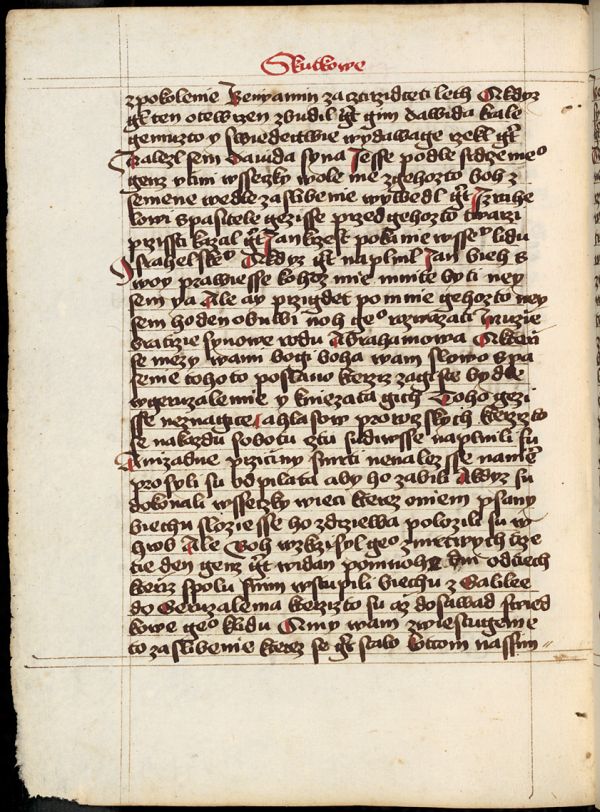 Skutkowe
zpokolenie Benyamin zacztrzidceti leth Akdyz
gt ten otewrzen zbudil gt gim dawida krale
gemuzto y swiedectwie wydawage rzekl gt
Nalezl sem Dauida syna Jesse podle srdze meo
genz vcini wsseczky wole me zgehozto boh z
semene wedle zaslibenie wywedl gt Izrahe
lowi spasitele gezisse przed gehozto twarzi
przissti kazal gt Jan krzest pokanie wsseo lidu
Israhelskeo Akdyz gt naplnil Jan bieh s
woy prawiesse kohoz mie mnite byti ney
sem ya Ale ay przigdet pomnie gehozto ney
sem hoden obuwi noh geo rozwazati Muzie
bratrzie synowe rodu Abrahamowa Akterzi
se mezy wami bogi boha wam slowo spa
senie tohoto poslano kterziz zagiste bydle
wgeruzalemie y kniezata gich Toho gezi
sse neznagice ahlasow prorokskych kterzizto
se nakazdu sobotu cztu sudiwsse naplnili su
Anizadne prziciny smrti nenalezsse nanem
prosyli su odpilata aby ho zabili Akdyz su
dokonali wsseczky wieci kterez oniem psany
biechu slozie sse ho zdrziewa polozili su w
hrob Ale Boh wzkrzisyl geo zmrtwych trze
tie den genz gt widan pomnoho dni odtiech
kteriz spolu snim wstupili biechu z Galilee
do Geruzalema kterizto su az dosawad swied
kowe geo klidu Amy wam zwiestugeme
to zaslibenie kterez se gt stalo kottom nassim